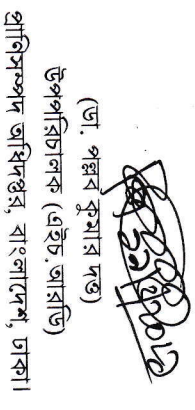 (ডা. পল্লব কুমার দত্ত)
উপপরিচালক (এইচ.আরডি)
প্রাণিসম্পদ অধিদপ্তর, বাংলাদেশ, ঢাকা।